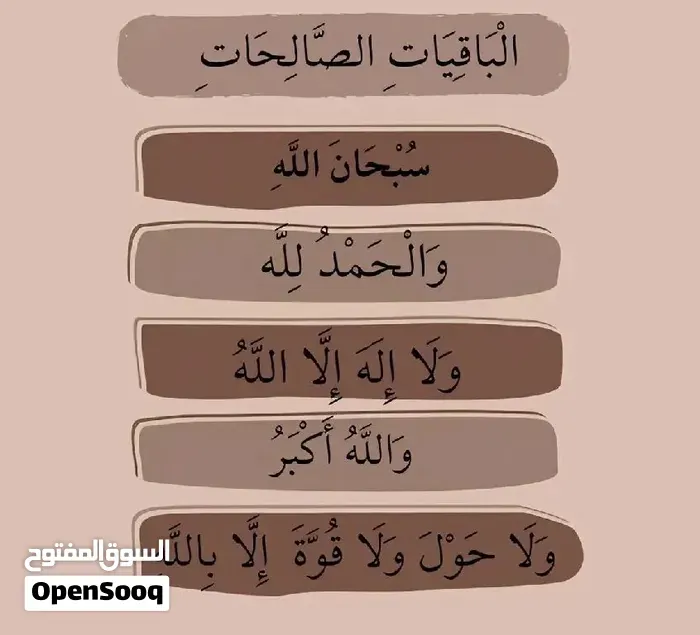 الْبَاقِيَاتِ الصَّالِحَاتِ
سُبْحَانَ اللَّهِ
وَالْحَمْدُ لِلَّه
وَلَا إِلَهَ إِلَّا اللَّهُ
وَاللَّهُ أَكْبَرُ
وَلَا حَوْلَ وَلَا قُوَّةَ إِلَّا بِاللَّهِ
السوق المفتوح
OpenSooq